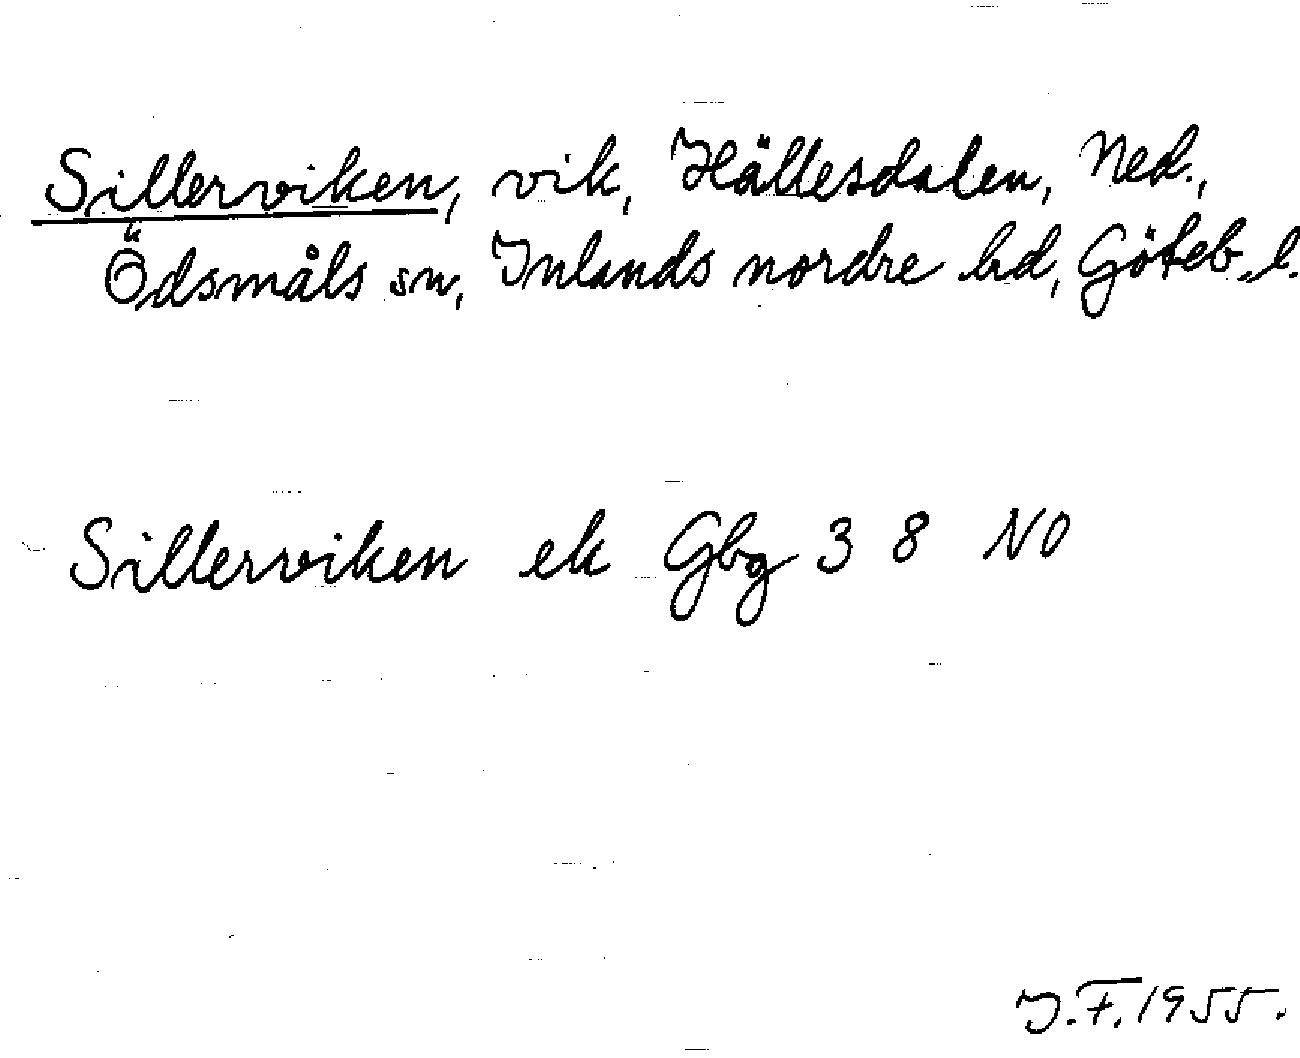 Sillerviken, vik, Hällesdalen, Ned.,
Ödsmåls sn, Inlands nordre hd, Göteb. l.
Sillerviken ek Gbg 3 8 NO
J.F. 1955.